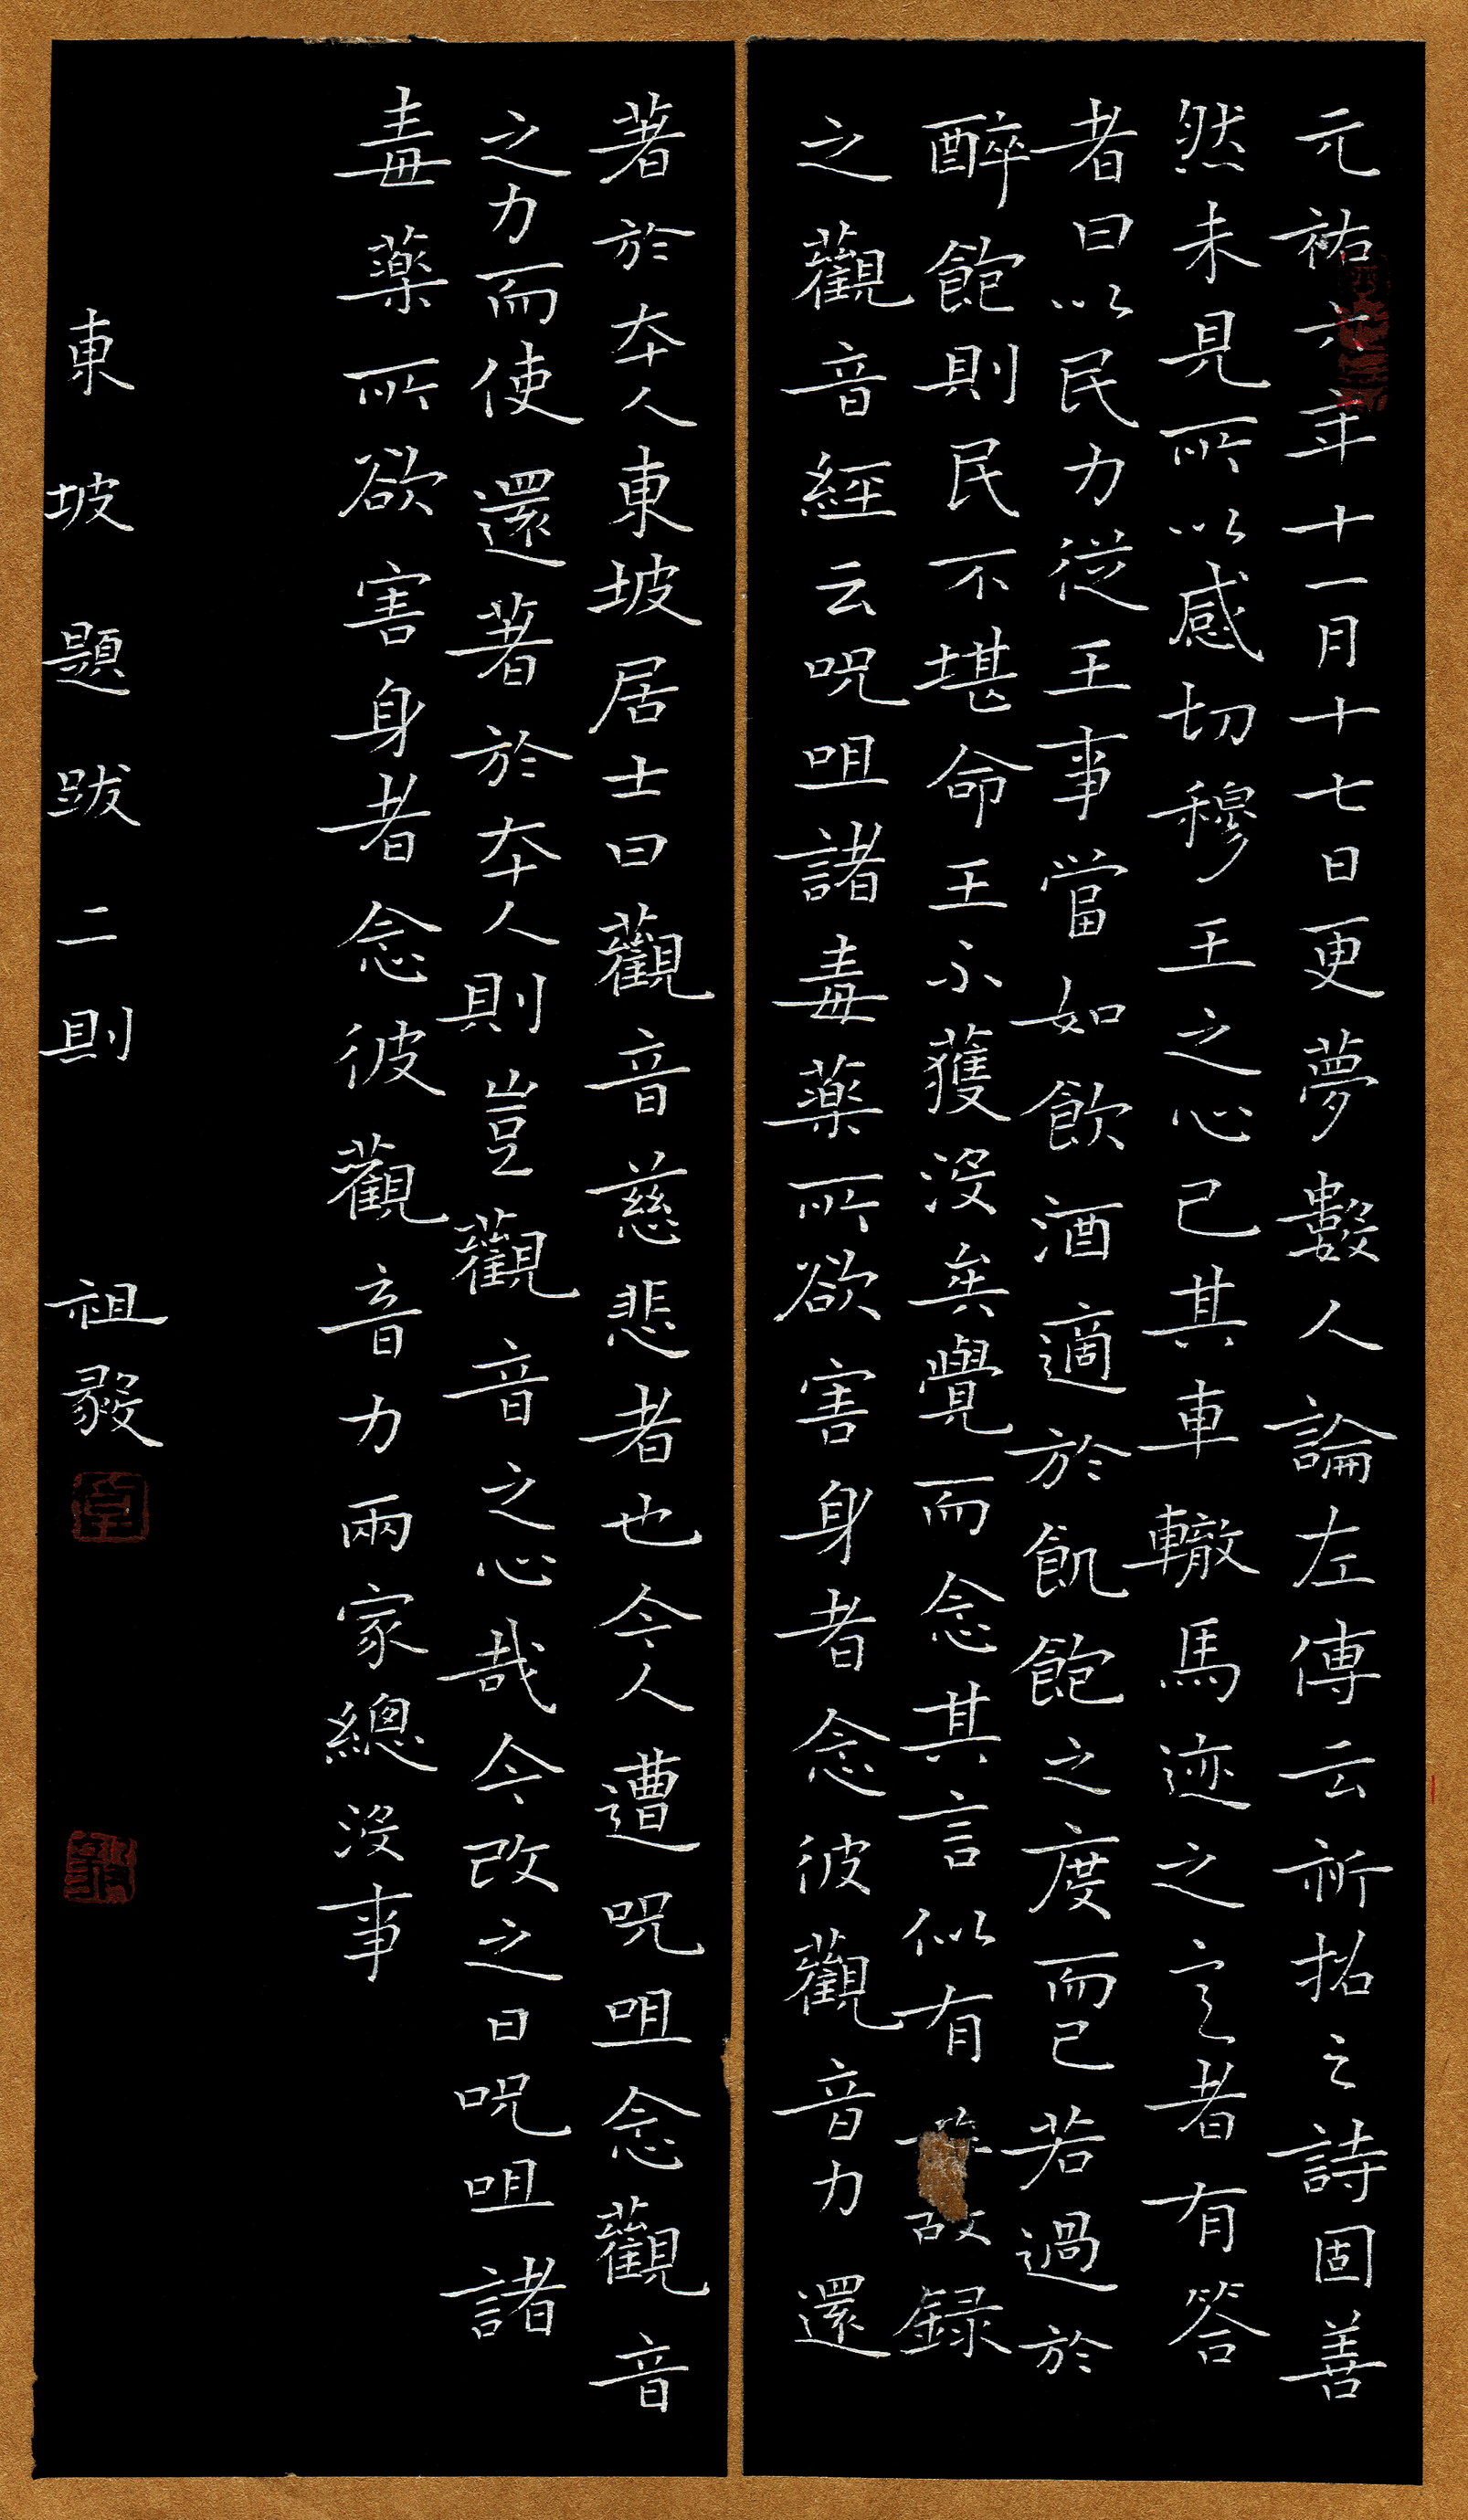 元祐六年十一月十七日更夢數人論左傳云祈招之詩固善
然未見所以感切穆王之心已其車轍馬迹之意者有答
者曰以民力從王事當如飲酒適於飢飽之度而已若過於
醉飽則民不堪命王不獲沒矣覺而念其言似有故録
之觀音經云呪咀諸毒藥所欲害身者念彼觀音力還
著於本人東坡居士曰觀音慈悲者也今人遭呪咀念觀音
之力而使還著於本人則豈觀音之心哉今改之曰呪咀諸
毒藥所欲害身者念彼觀音力兩家總沒事
東坡題跋二則 祖毅